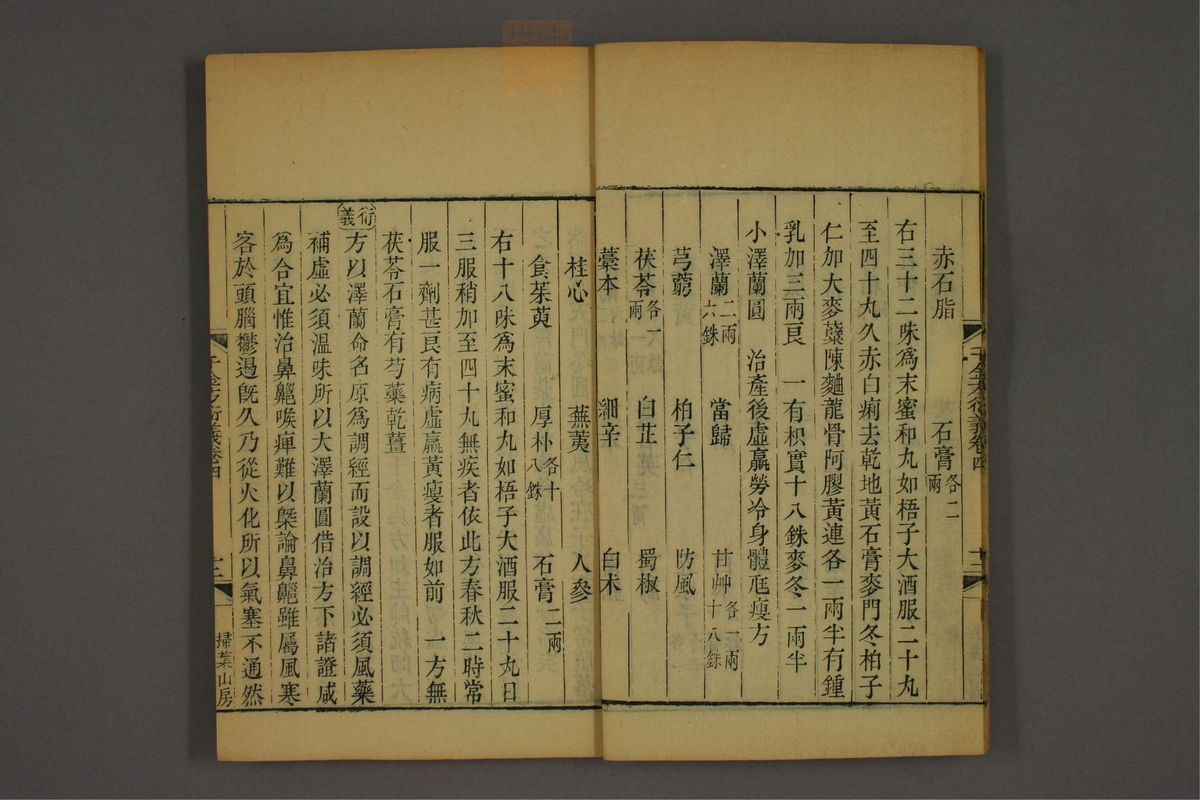 赤石脂　石膏各二兩
右三十二味爲末蜜和丸如梧子大酒服二十丸
至四十丸久赤白痢去乾地黃石膏麥門冬柏子
仁加大麥蘗陳麯龍骨阿膠黃連各一兩半有鍾
乳加三兩良　一有枳實十八銖麥冬一兩半
小澤蘭圓　治產後虛羸勞冷身體尫瘦方
澤蘭二兩六銖　當歸　甘艸各一兩十八銖
芎藭　柏子仁　防風
茯苓各一兩　白芷　蜀椒
藁本　細辛　白朮
桂心　蕪荑　人參
食茱萸　厚朴各十八銖　石膏二兩
右十八味爲末蜜和丸如梧子大酒服二十丸日
三服稍加至四十丸無疾者依此方春秋二時常
服一劑甚良有病虛羸黃瘦者服如前　一方無
茯苓石膏有芍藥乾薑
衍義　方以澤蘭命名原爲調經而設以調經必須風藥
補虛必須溫味所以大澤蘭圓借治方下諸證咸
爲合宜惟治鼻鼽喉痺難以槩論鼻鼽雖屬風寒
客於頭腦鬱遏旣久乃從火化所以氣塞不通然
千金方衍義卷四
十二
掃葉山房